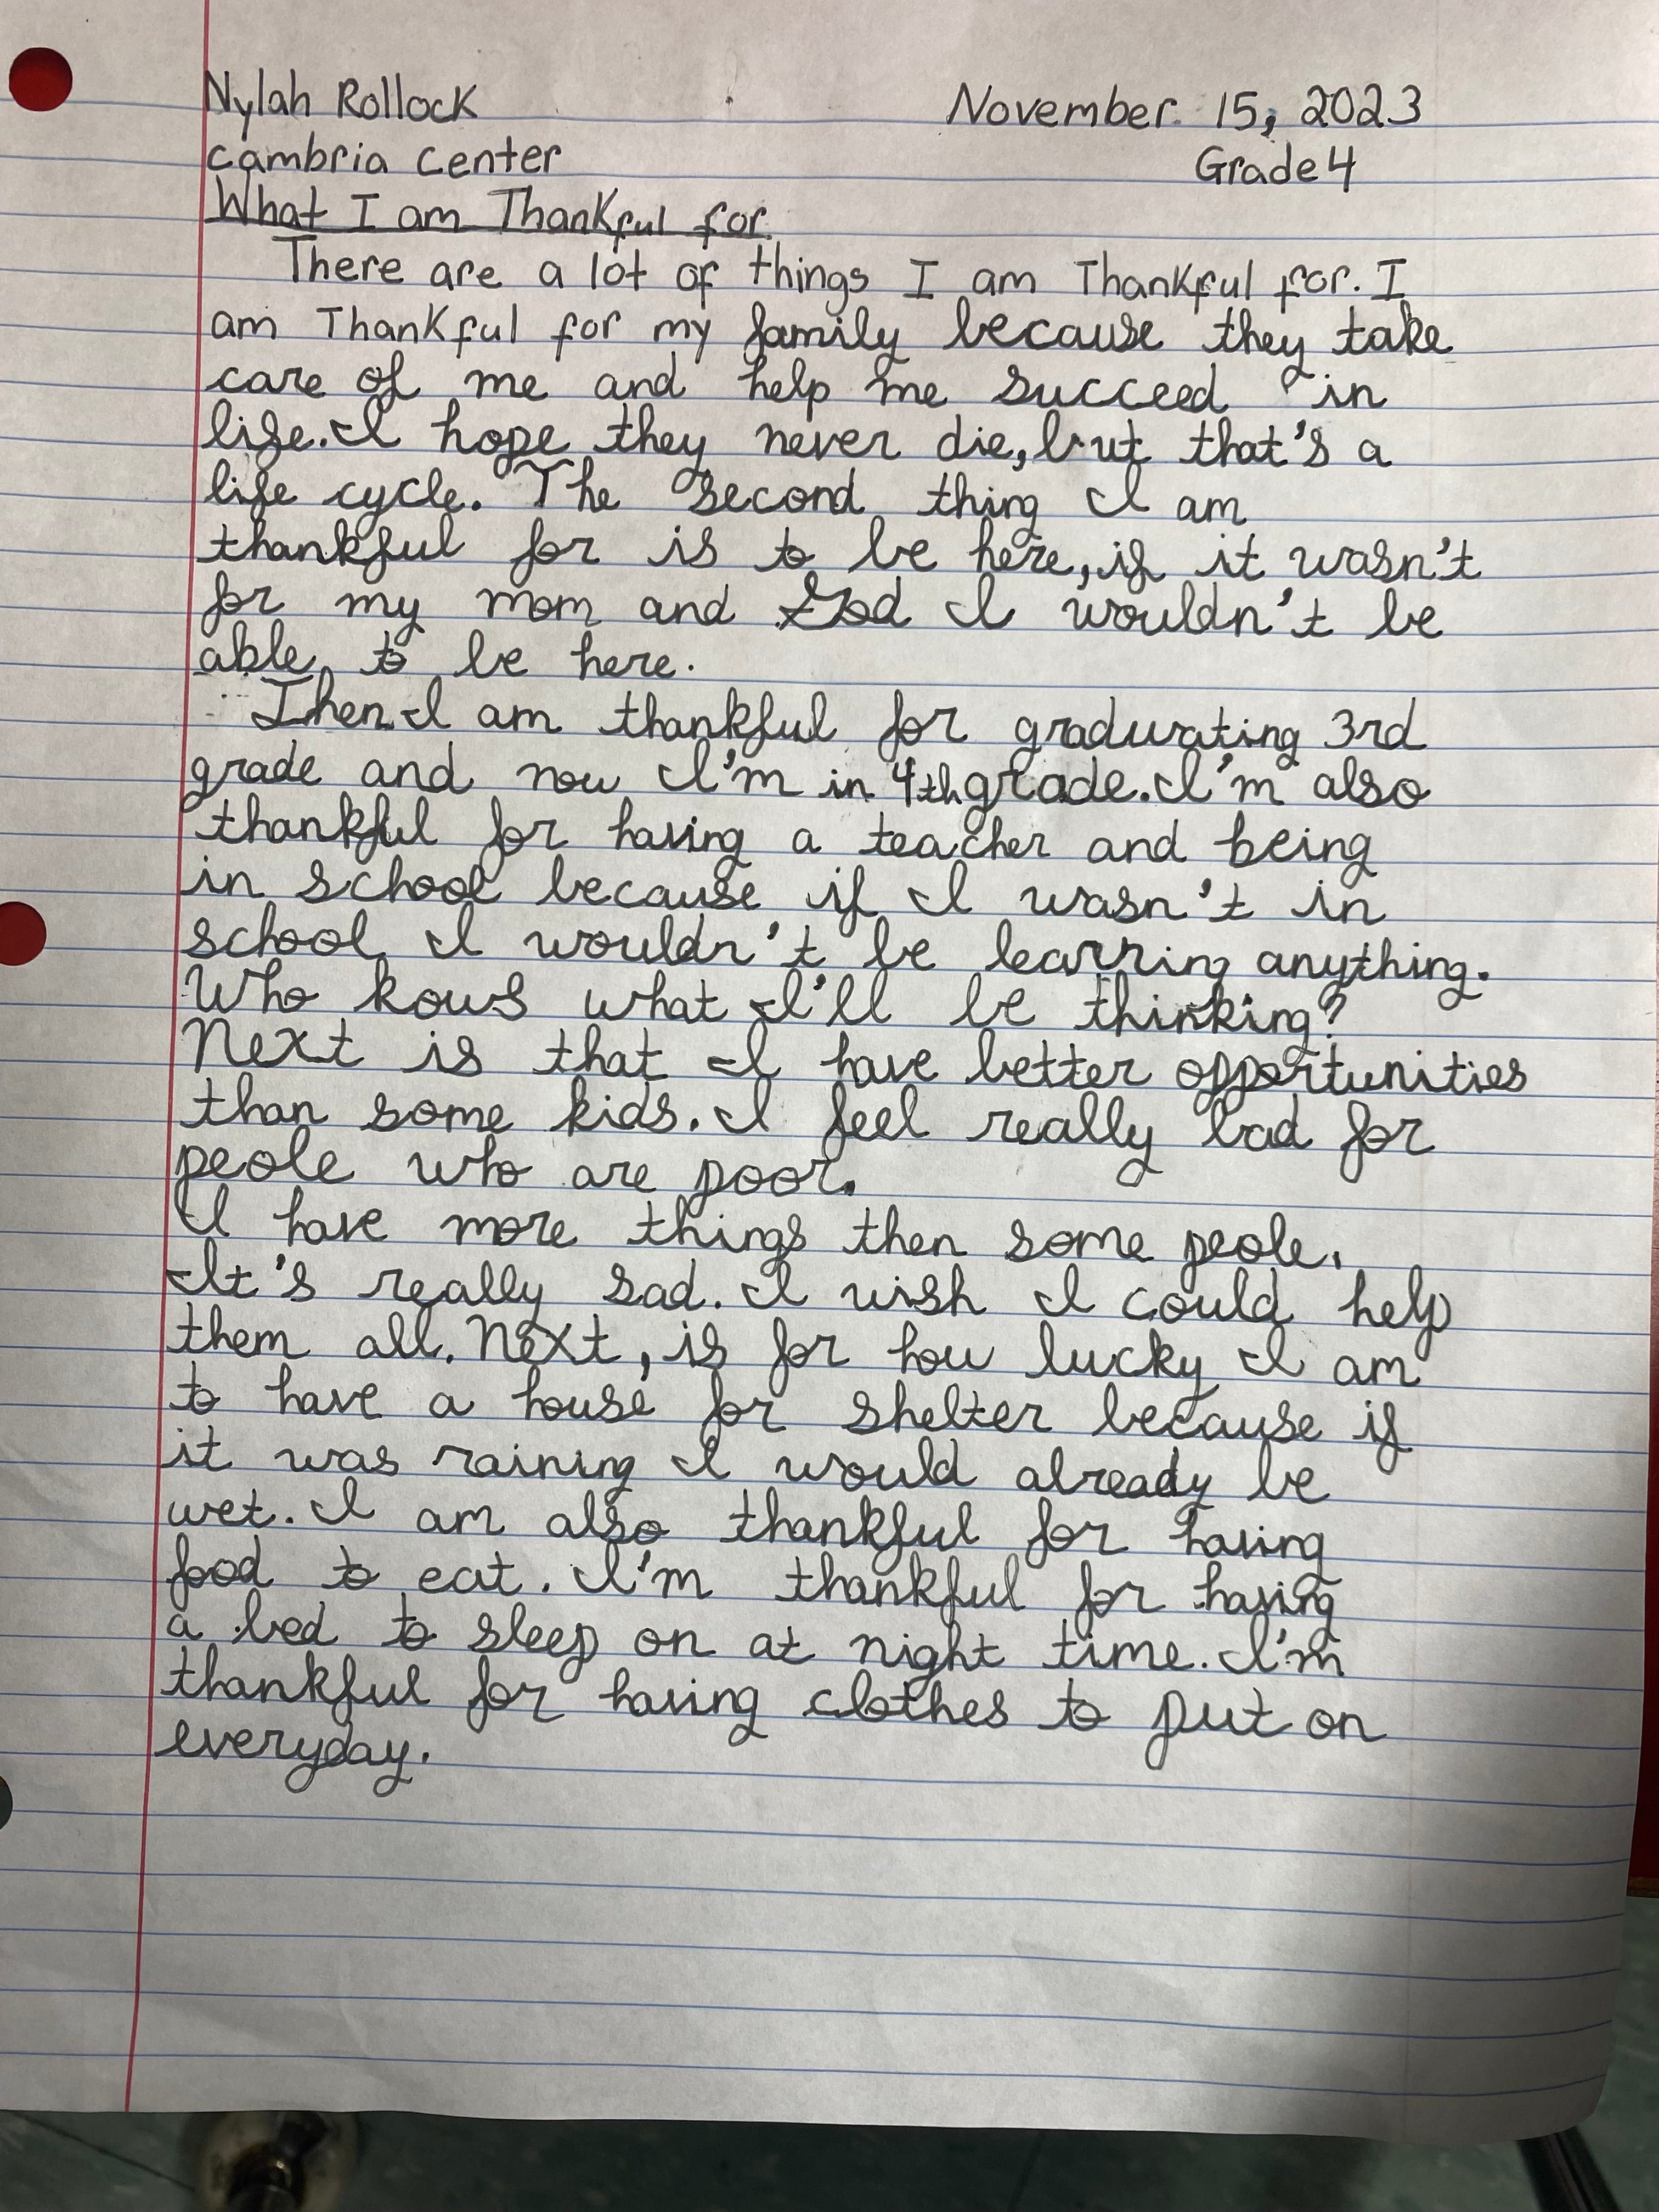 Nylah Rollock November 15, 2023
Cambria Center Grade 4
What I am Thankful for
There are a lot of things I am Thankful for. I
am Thankful for my family because they take
care of me and help me succeed in
life. I hope they never die, but that's a
life cycle. The second thing I am
thankful for is to be here, if it wasn't
for my mom and God I wouldn't be
able to be here.
Then I am thankful for graduating 3rd
grade and now I'm in 4th grade. I'm also
thankful for having a teacher and being
in school because if I wasn't in
school I wouldn't be learning anything.
Who kows what I'll be thinking?
Next is that I have better opportunities
than some kids. I feel really bad for
peole who are poor.
I have more things then some peole.
It's really sad. I wish I could help
them all. Next, is for how lucky I am
to have a house for shelter because if
it was raining I would already be
wet. I am also thankful for having
food to eat. I'm thankful for having
a bed to sleep on at night time. I'm
thankful for having clothes to put on
everyday.